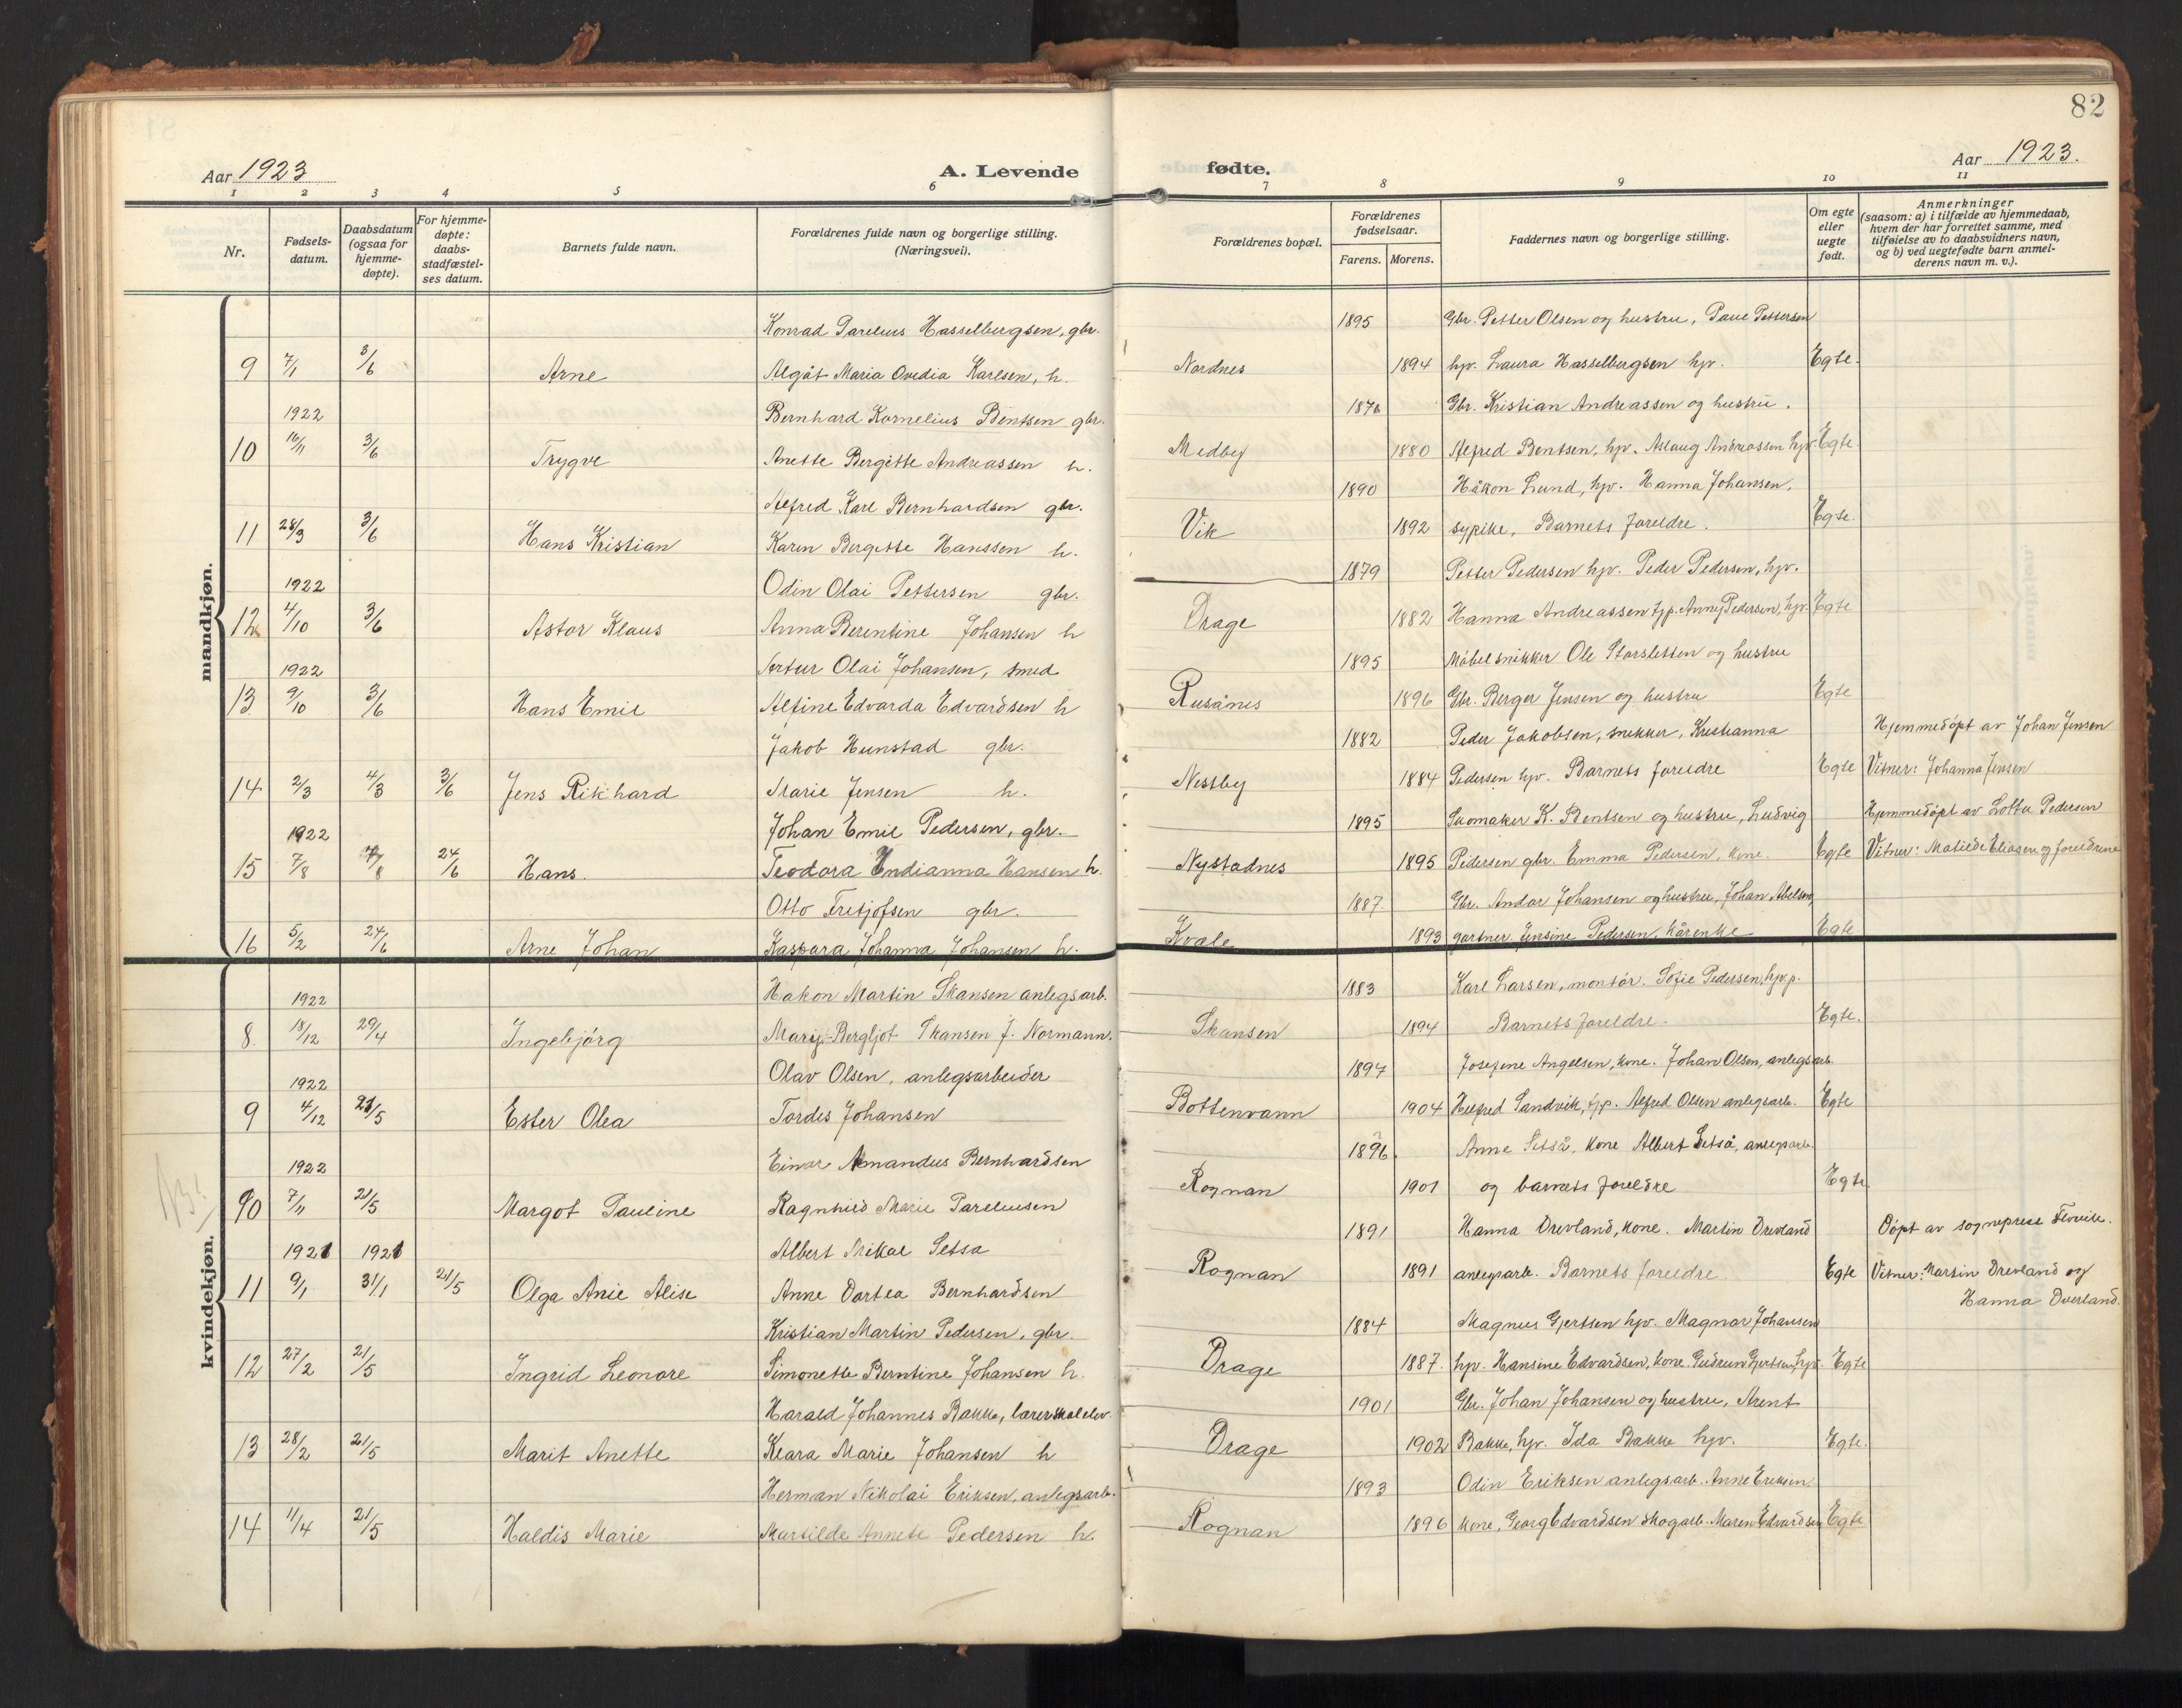 82
Aar 1923
A. Levende
fødte.
Aar 1923.
1 2 3 4 5 6 7 8 9 10 11
Nr.
Fødsels-datum.
Daabsdatum (ogsaa for hjemme-døpte).
For hjemme-døpte: daabs-stadfæstel-ses datum.
Barnets fulde navn.
Forældrenes fulde navn og borgerlige stilling. (Næringsvei).
Forældrenes bopæl.
Forældrenes fødselsaar.
Farens. Morens.
Faddernes navn og borgerlige stilling.
Om egte eller uegte født.
Anmerkninger (saasom: a) i tilfælde av hjemmedaab, hvem der har forrettet samme, med tilføielse av to daabsvidners navn, og b) ved uegtefødte barn anmel-derens navn m. v.).
mandkjøn.
Konrad Parelius Hasselbergsen, gbr. 1895 Gbr. Petter Olsen og hustru, Paul Pettersen
9 7/1 3/6 Arne Algåt Maria Ovedia Karlsen, h. Nordnes 1894 hjv. Laura Hasselbergsen hjv. Egte.
1922 Bernhard Kornelius Bentsen gbr. 1876 Gbr. Kristian Andreassen og hustru.
10 16/11 3/6 Trygve Anette Bergitte Andreassen h. Medby 1880 Alfred Bentsen, hjv. Aslaug Andreassen hjv. Egte
Alfred Karl Bernhardsen gbr. 1890 Håkon Lund, hjv. Hanna Johansen,
11 28/3 3/6 Hans Kristian Karen Bergitte Hanssen h. Vik 1892 sypike, Barnets foreldre. Egte.
1922 Odin Olai Pettersen gbr. 1879 Petter Pedersen hjv. Peder Pedersen, hjv.
12 4/10 3/6 Astor Klaus Anna Berentine Johansen h Drage 1882 Hanna Andreassen tjp. Anny Pedersen, hjv. Egte
1922 Artur Olai Johansen, smed 1895 Møbelsnikker Ole Storsletten og hustru
13 9/10 3/6 Hans Emil Alfine Edvarda Edvardsen h Rusånes 1896 Gbr. Berger Jensen og hustru Egte
Jakob Hunstad gbr. 1882 Peder Jakobsen, snekker, Kristianna Hjemmedøpt av Johan Jensen
14 2/3 4/3 3/6 Jens Rikhard Marie Jensen h. Nestby 1884 Pedersen hjv. Barnets foreldre Egte Vitner: Johanna Jensen
1922 Johan Emil Pedersen, gbr. 1895 Skomaker K. Bentsen og hustru, Ludvig Hjemmedøpt av Lotta Pedersen
15 7/8 7/8 24/6 Hans. Teodora Indianna Hansen h. Nystadnes 1895 Pedersen gbr. Emma Pedersen, kone. Egte Vitner: Matilde Eliasen og foreldrene
Otto Fritjofsen gbr. 1887. Gbr. Andor Johansen og hustru, Johan Abelsen,
16 5/2 24/6 Arne Johan Kaspara Johanna Johansen h. Kvæle 1893 gartner Jensine Pedersen, kårenke Egte
kvindekjøn.
1922 Håkon Martin Skansen anlegsarb. 1883 Karl Larsen, montør. Sofie Pedersen, hjv.p.
8 18/12 29/4 Ingebjørg Mary-Bergljot Skansen f. Normann. Skansen 1894 Barnets foreldre. Egte.
1922 Olav Olsen, anlegsarbeider 1897 Josefine Angelsen, kone. Johan Olsen, anlegsarb.
9 4/12 21/5 Ester Olea Tordis Johansen Bottenvann 1904 Helfred Sandvik, tjp. Alfred Olsen anlegsarb. Egte
1922 Einar Amandus Bernhardsen 1896 Anne Setså, kone Albert Setså, anlegsarb.
10 7/11 21/5 Margot Pauline Ragnhild Marie Pareliusen Rognan 1901 og barnets foreldre Egte
1921 1921 Albert Mikal Setså 1891 Hanna Drevland, kone. Martin Drevland Døpt av sogneprest Flovik.
11 9/1 31/1 21/5 Olga Anie Alise Anne Dortea Bernhardsen Rognan 1891 anlegsarb. Barnets foreldre Egte Vitner: Martin Drevland og
Hanna Dverland.
Kristian Martin Pedersen, gbr. 1884 Magnus Gjertsen hjv. Magnar Johansen
12 27/2 21/5 Ingrid Leonore Simonette Berntine Johansen h. Drage 1887. hjv. Hansine Edvardsen, kone. Gudrun Gjertsen, hjv. Egte
Harald Johannes Bakke, lærerskolelev. 1901 Gbr. Johan Johansen og hustru, Arent
13 28/2 21/5 Marit Anette Klara Marie Johansen h Drage 1902 Bakke, hjv. Ida Bakke hjv. Egte.
Herman Nikolai Eriksen, anlegsarb. 1893 Odin Eriksen anlegsarb. Anne Eriksen
14 11/4 21/5 Haldis Marie Martilde Annete Pedersen h. Rognan 1896 kone, Georg Edvardsen skogarb. Maren Edvardsen Egte